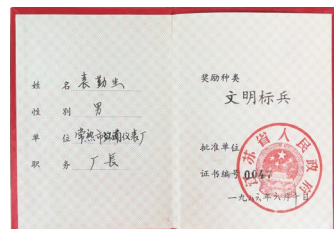 姓 名 袁勤虫
性 别 男
单 位 常熟市 仪表厂
职 务 厂長
奖励种类
文明标兵
批准单位
江苏省人民政府
证书编号 004
一九八六年六月 日